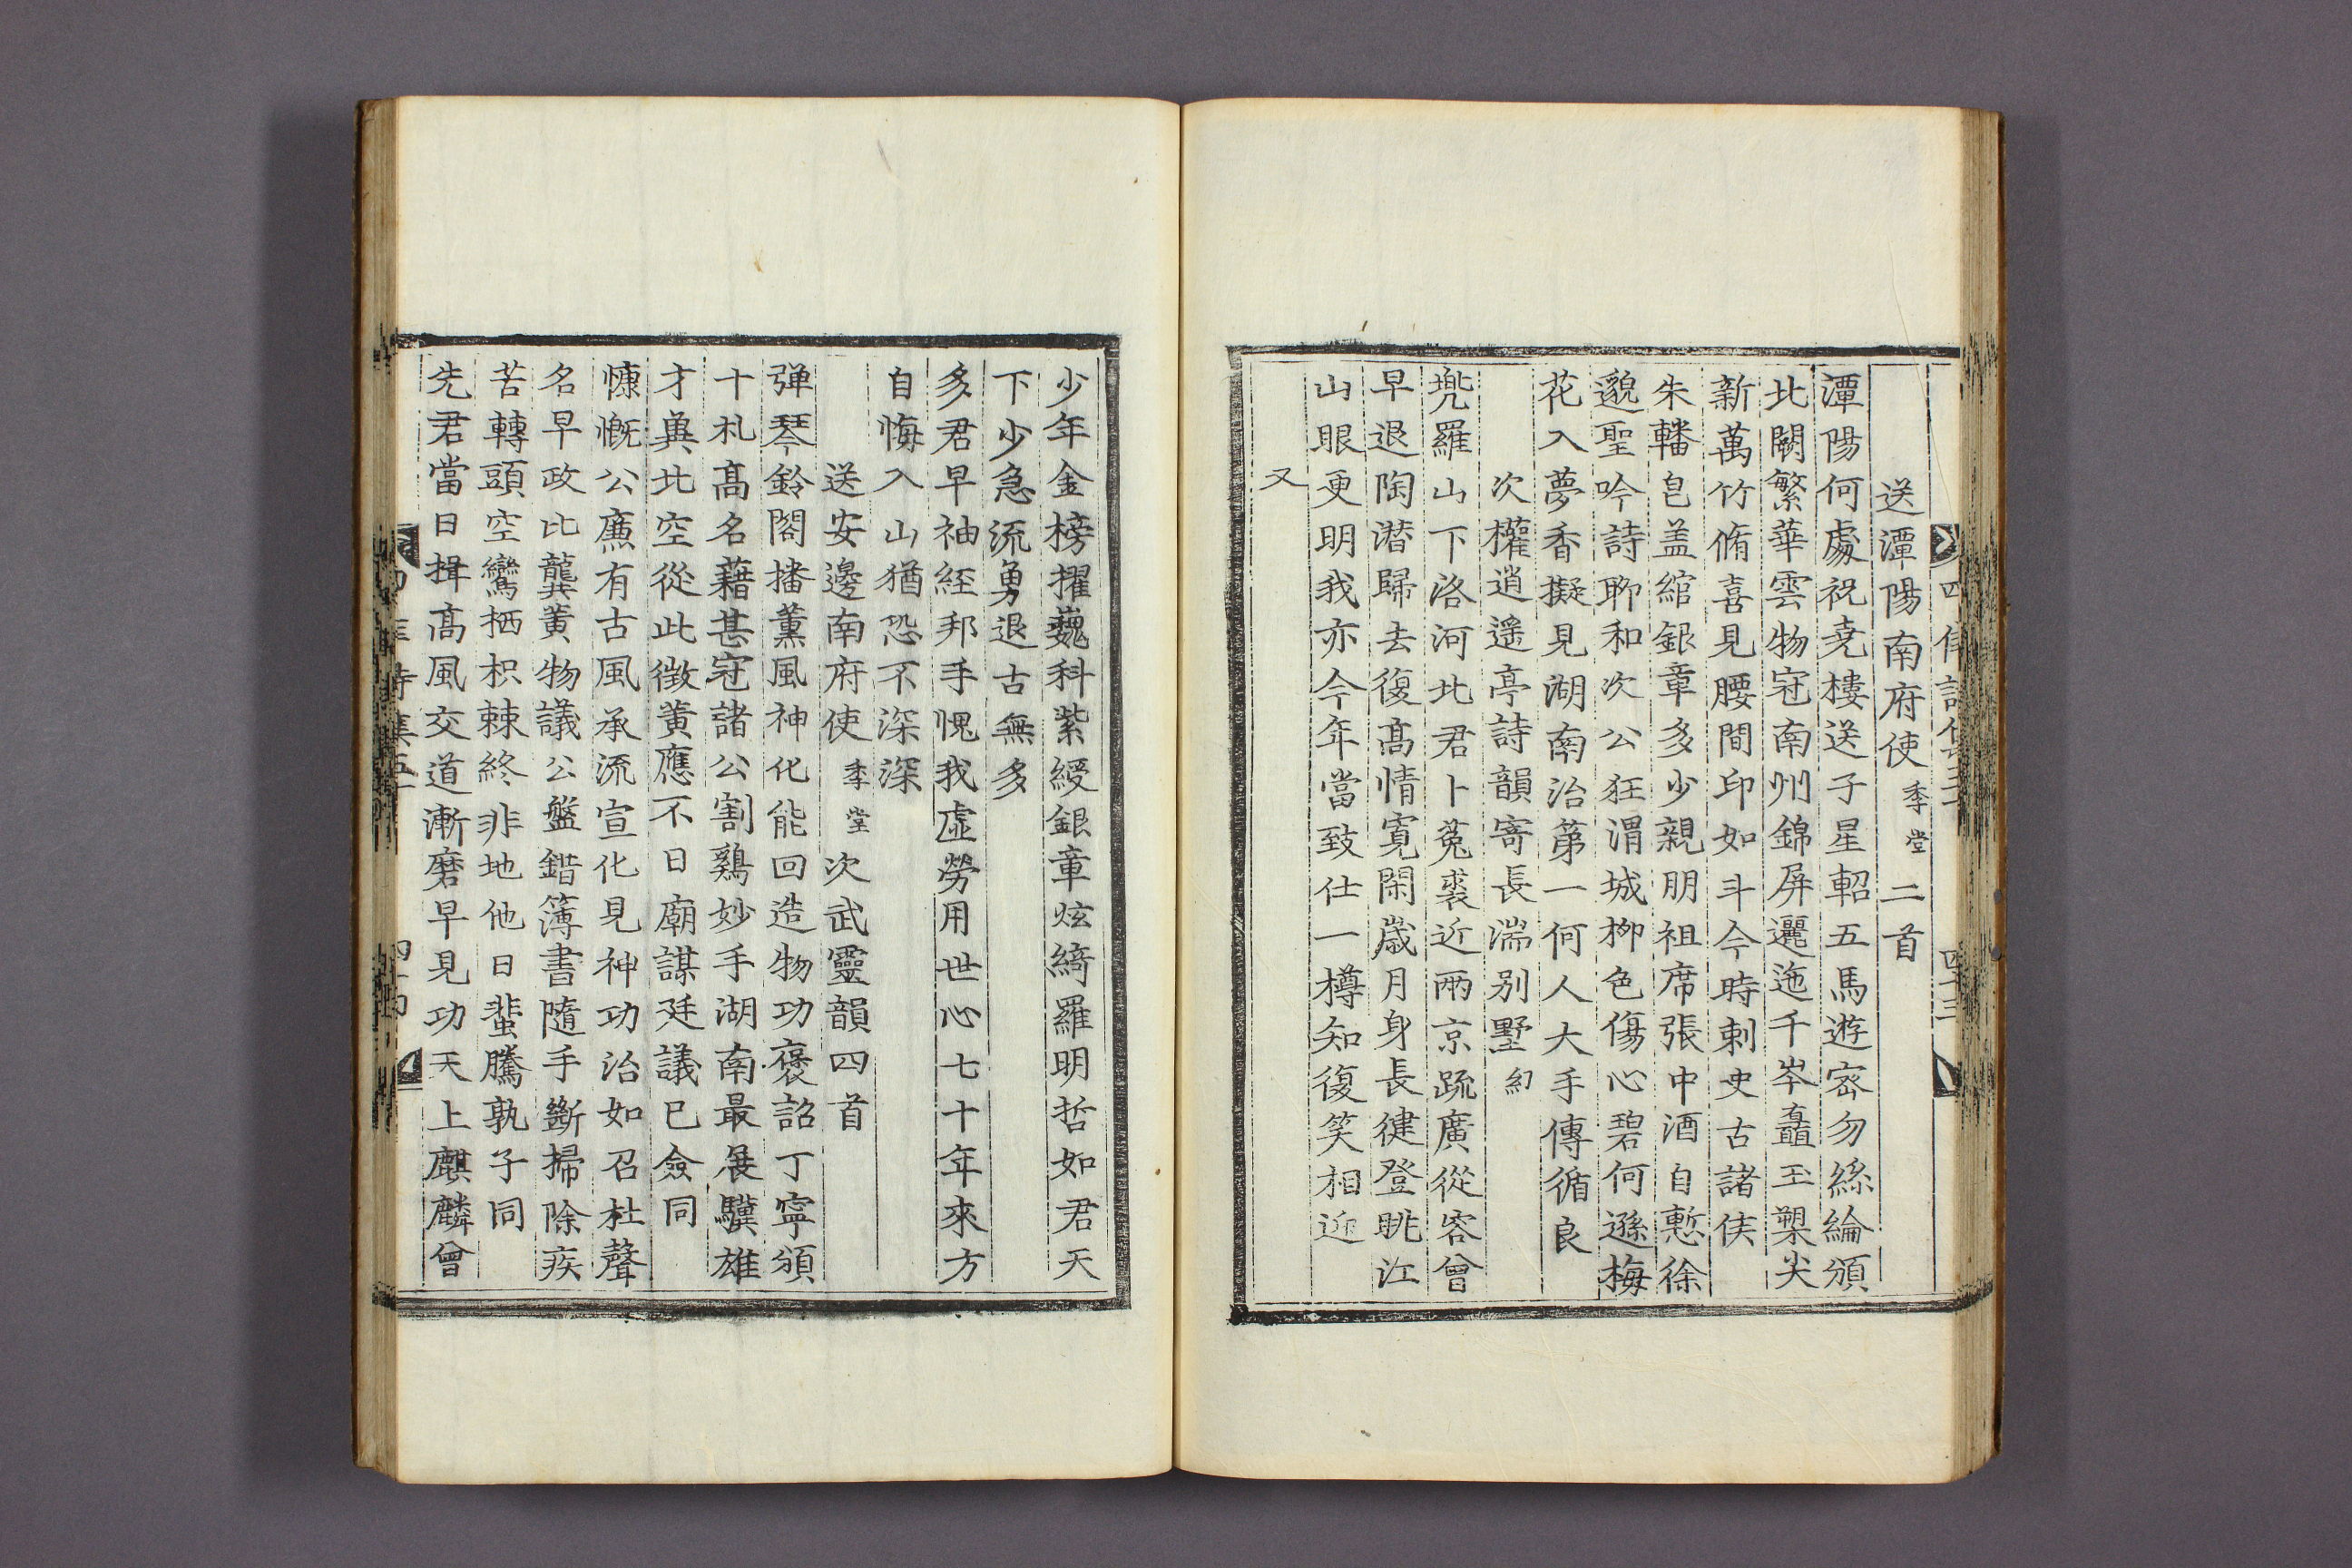 送潭陽南府使季堂二首
潭陽何處祝堯樓送子星軺五馬遊宻勿絲綸頒
北闕繁華雲物冠南州錦屏邐迤千岑矗玉槊尖
新萬竹脩喜見腰間印如斗今時刺史古諸侯
朱轓皂盖綰銀章多少親朋祖席張中酒自慙徐
邈聖吟詩聊和次公狂渭城柳色傷心碧何遜梅
花入夢香擬見湖南治第一何人大手傳循良
次權逍遙亭詩韻寄長湍別墅
兠羅山下洛河北君卜菟裘近兩京疏廣從容曾
早退陶潜歸去復髙情寛閑歲月身長健登眺江
山眼更明我亦今年當致仕一樽知復笑相迎
又
少年金榜擢巍科紫綬銀章炫綺羅明哲如君天
下少急流勇退古無多
多君早袖經邦手愧我虛勞用世心七十年來方
自悔入山猶恐不深深
送安邊南府使季堂次武靈韻四首
弹琴鈴閣播薰風神化能回造物功褒詔丁寧頒
十札髙名藉甚冠諸公割鷄妙手湖南最展驥雄
才兾北空從此徵黃應不日廟謀廷議已僉同
慷慨公廉有古風承流宣化見神功治如召杜聲
名早政比龔黃物議公盤錯簿書隨手斷掃除疾
苦轉頭空鸞栖枳棘終非地他日蜚騰孰子同
先君當日揖髙風交道漸磨早見功天上麒麟曾